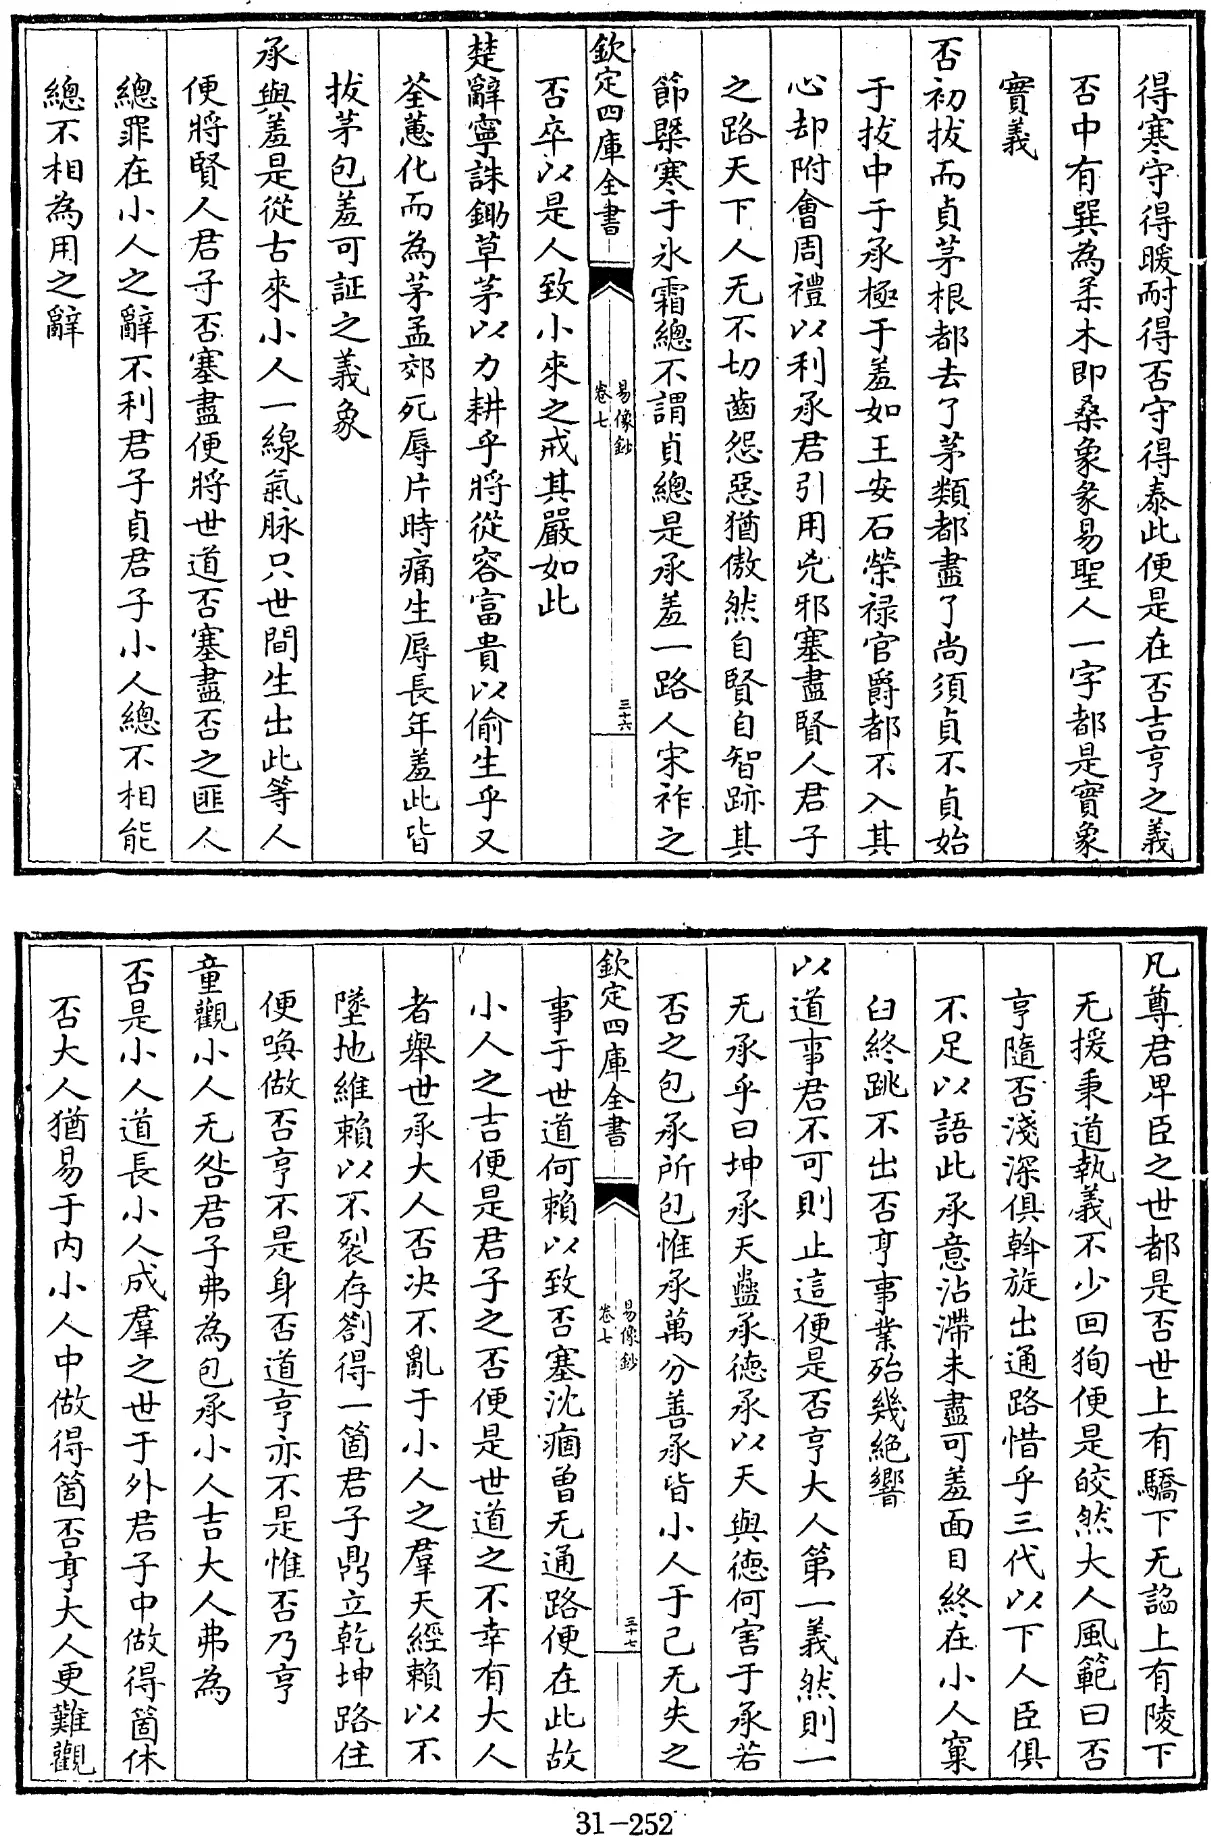 得寒守得暖耐得否守得泰此便是在否吉亨之義
否中有巽為柔木即桑象象易聖人一字都是實象
實義
否初拔而貞茅根都去了茅類都盡了尚須貞不貞始
于拔中于承極于羞如王安石榮禄官爵都不入其
心却附會周禮以利承君引用兇邪塞盡賢人君子
之路天下人无不切齒怨惡猶傲然自賢自智跡其
節槩寒于氷霜總不謂貞總是承羞一路人宋祚之
欽定四庫全書
易像鈔
卷七
三十六
否卒以是人致小來之戒其嚴如此
楚辭寧誅鋤草茅以力耕乎將從容富貴以偷生乎又
荃蕙化而為茅孟郊死辱片時痛生辱長年羞此皆
拔茅包羞可証之義象
承與羞是從古來小人一線氣脉只世間生出此等人
便將賢人君子否塞盡便將世道否塞盡否之匪人
總罪在小人之辭不利君子貞君子小人總不相能
總不相為用之辭
凡尊君卑臣之世都是否世上有驕下无諂上有陵下
无援秉道執義不少回狥便是皎然大人風範曰否
亨隨否淺深俱斡旋出通路惜乎三代以下人臣俱
不足以語此承意沾滯未盡可羞面目終在小人窠
臼終跳不出否亨事業殆幾絶響
以道事君不可則止這便是否亨大人第一義然則一
无承乎曰坤承天蠱承德承以天與德何害于承若
否之包承所包惟承萬分善承皆小人于己无失之
欽定四庫全書
易像鈔
卷七
三十七
事于世道何賴以致否塞沈痼曾无通路便在此故
小人之吉便是君子之否便是世道之不幸有大人
者舉世承大人否決不亂于小人之羣天經賴以不
墜地維賴以不裂存劄得一箇君子鼎立乾坤路住
便喚做否亨不是身否道亨亦不是惟否乃亨
童觀小人无咎君子弗為包承小人吉大人弗為
否是小人道長小人成羣之世于外君子中做得箇休
否大人猶易于内小人中做得箇否亨大人更難觀
31-252